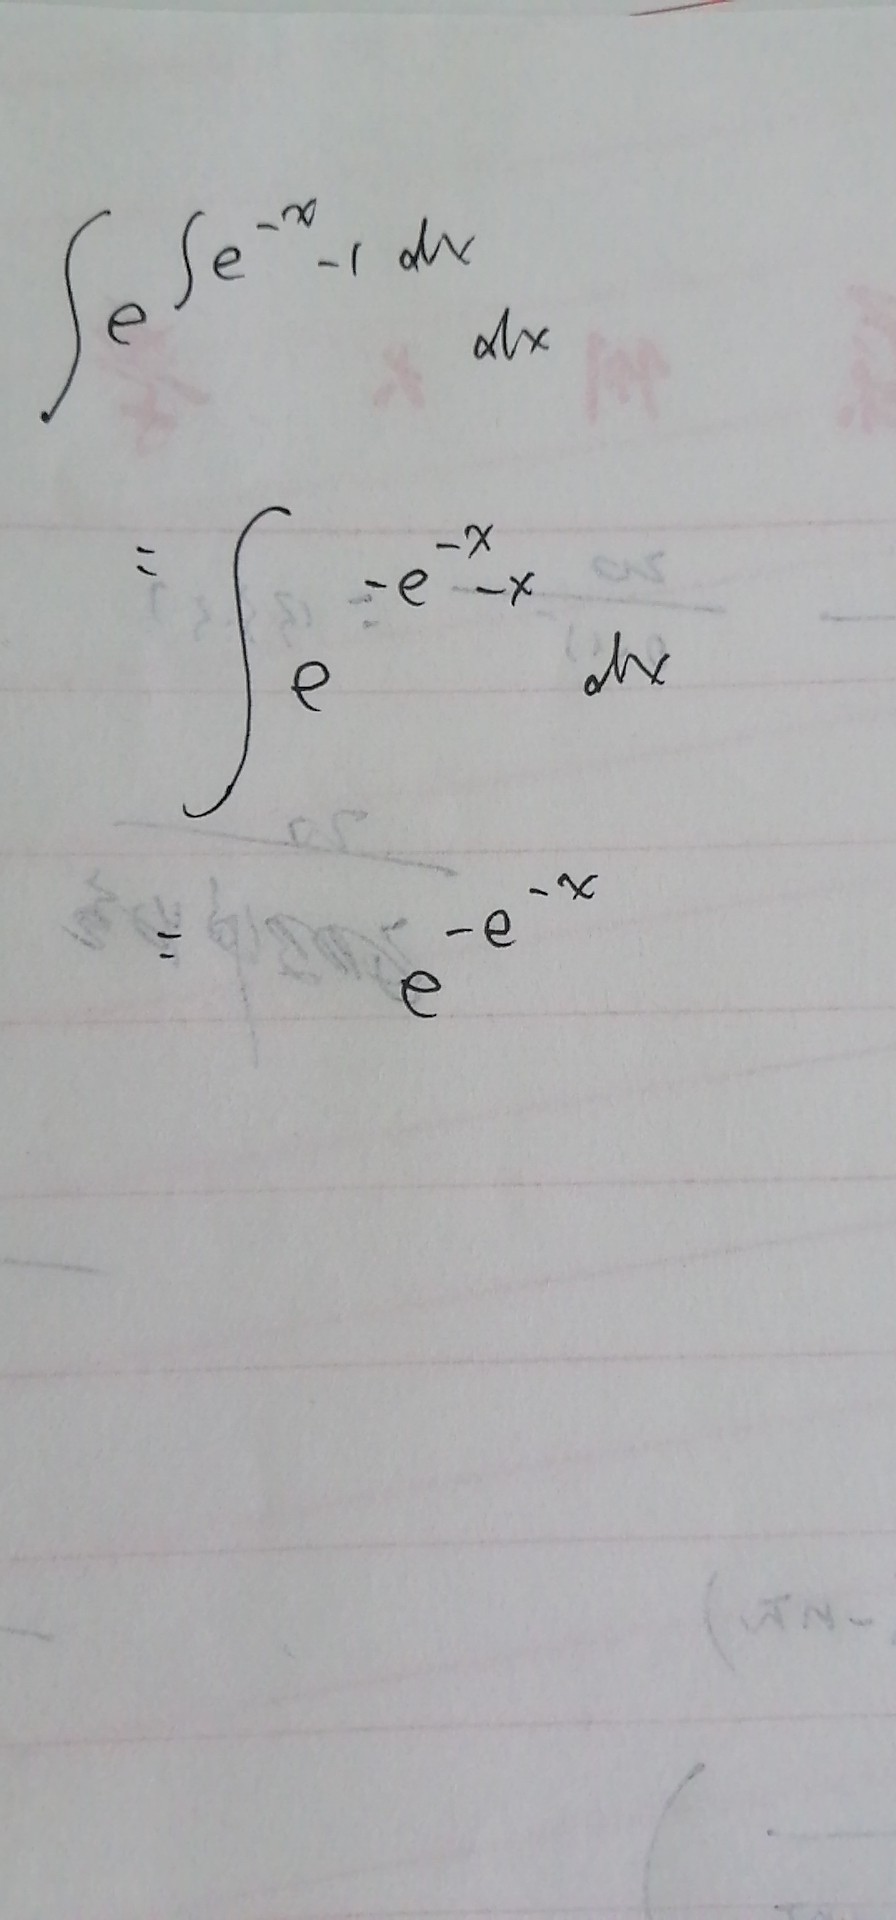 ∫ e^{∫ e^{-x} -1 dx} dx
= ∫ e^{-e^{-x} -x} dx
= e^{-e^{-x}}